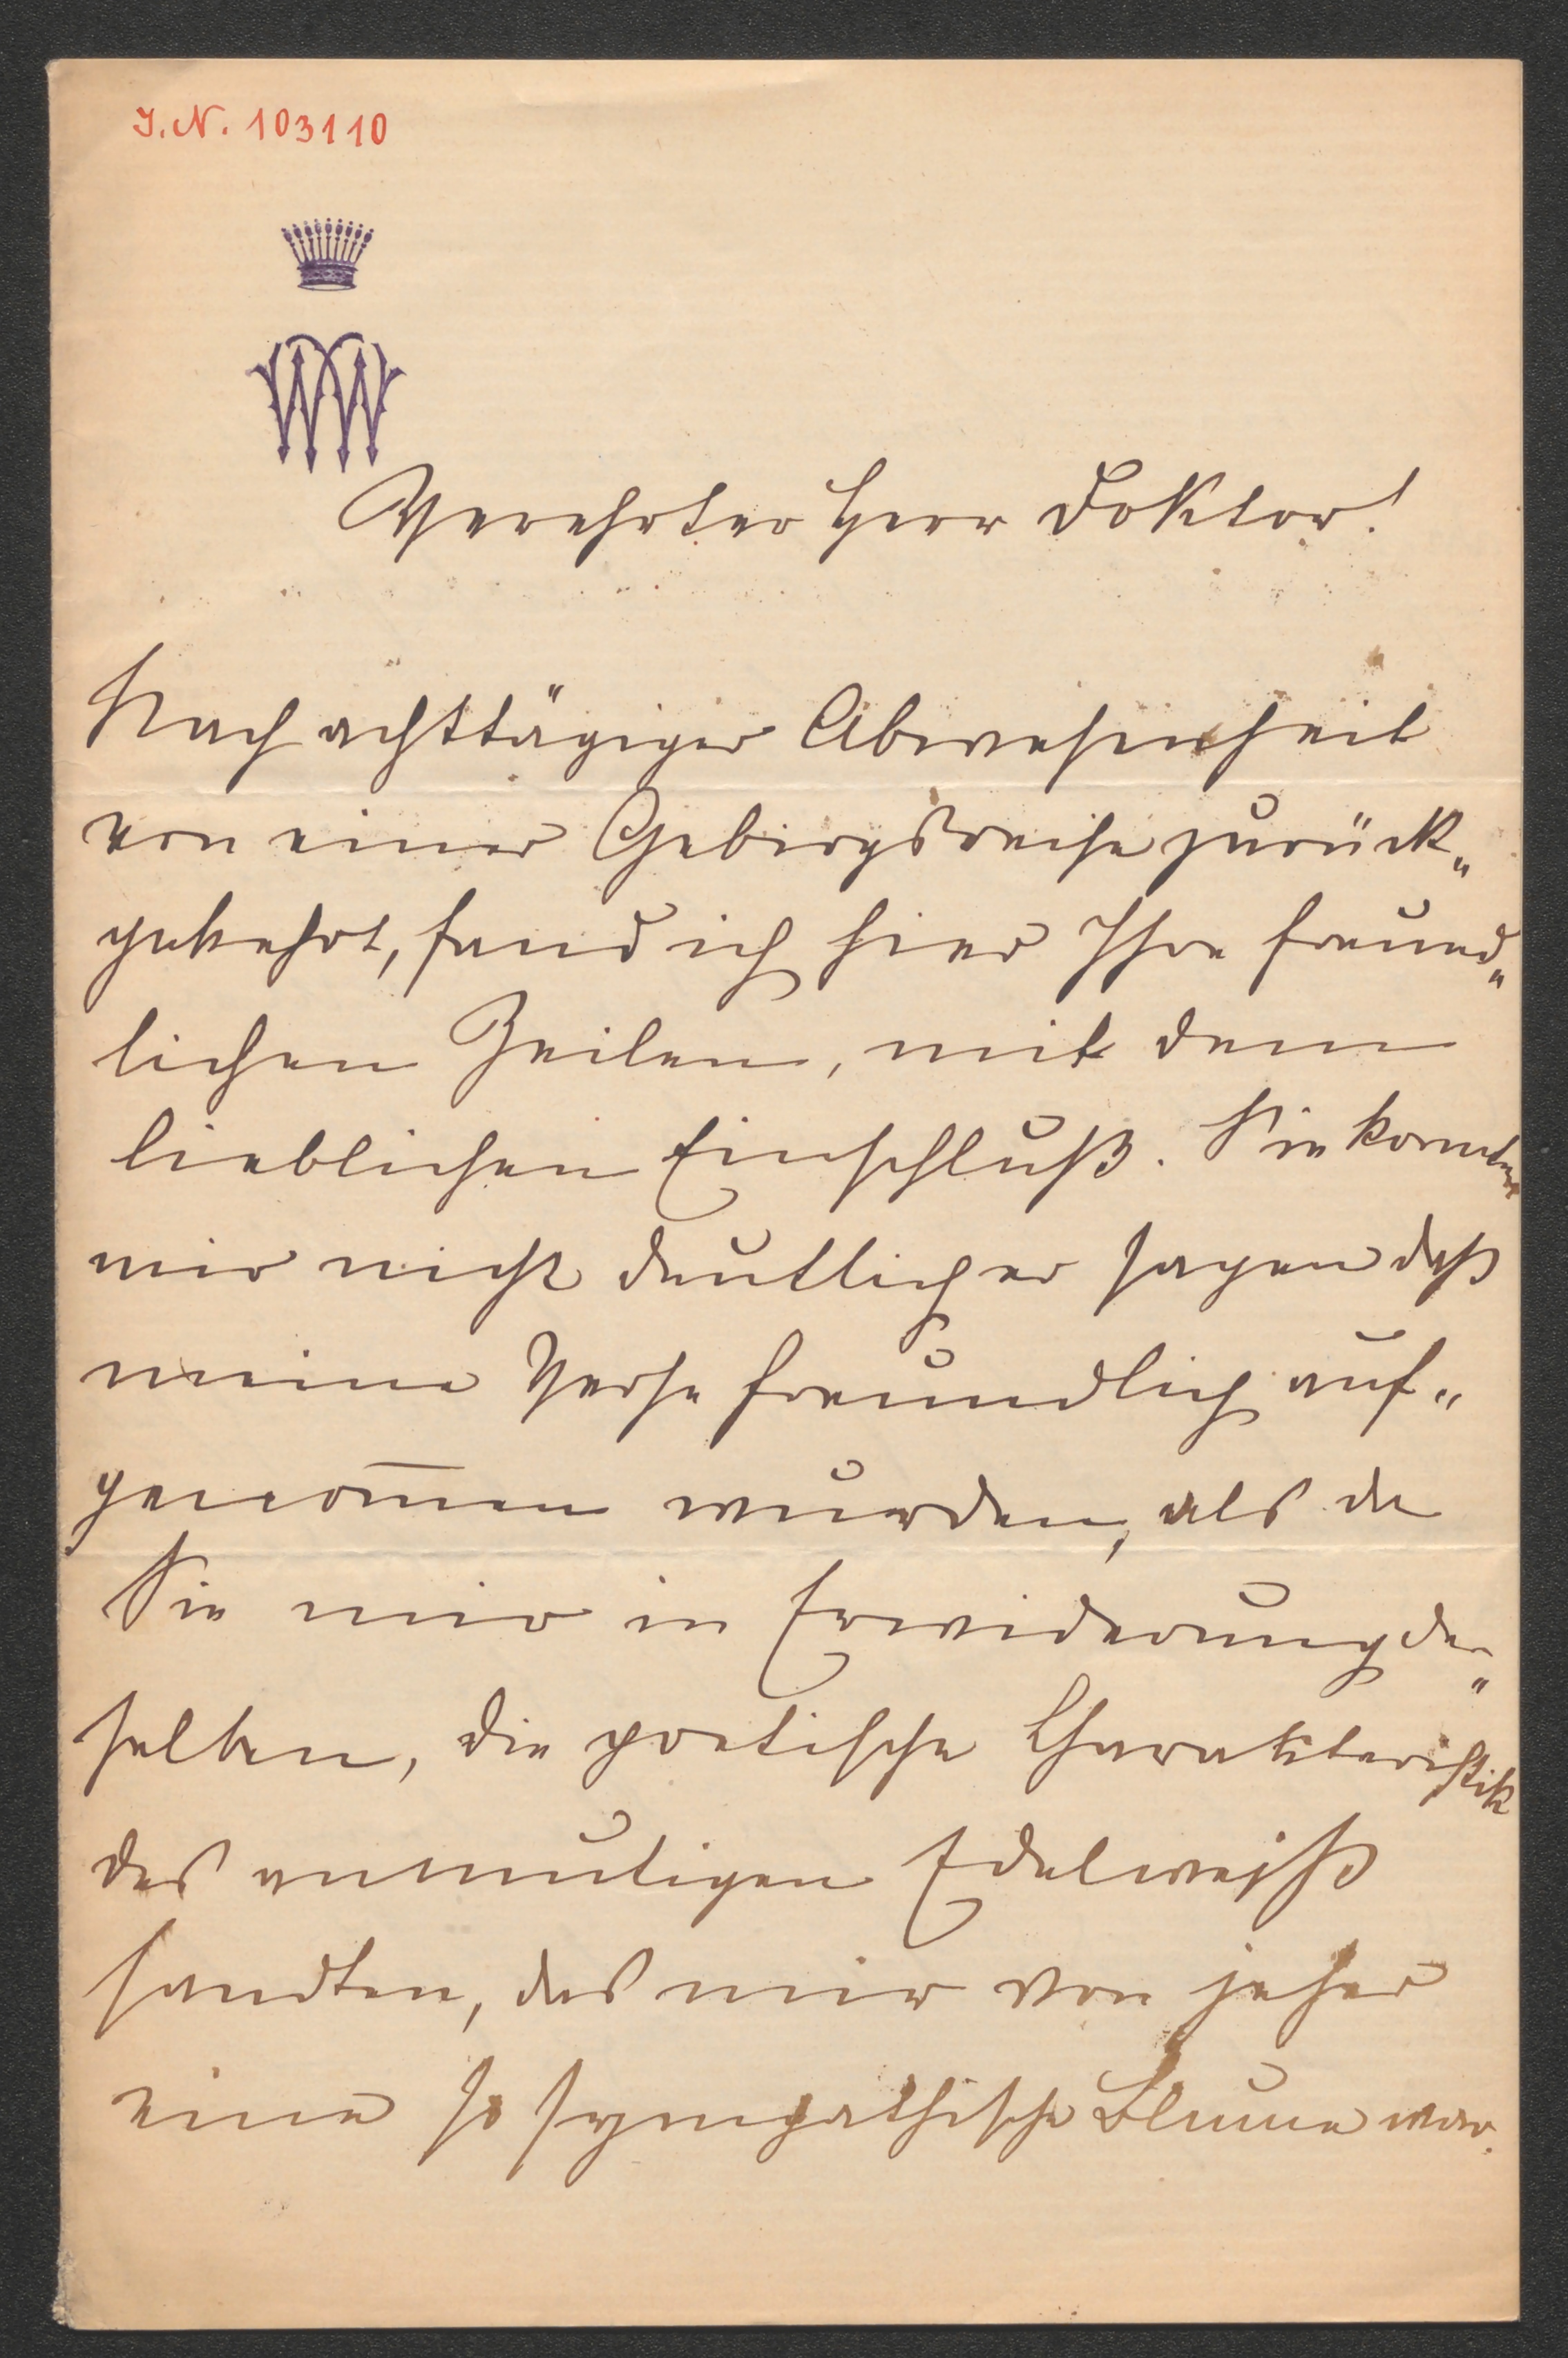 I.N. 103110
W
Verehrter Herr Doktor!
Nach achttägiger Abwesenheit
von einer Gebirgsreise zurück„
gekehrt, fand ich hier Ihre freund„
lichen Zeilen, mit dem
lieblichen Einschluß. Sie konnten
mir nicht deutlicher sagen daß
meine Verse freundlich auf„
genom̅en wurden, als da
Sie mir in Erwiderung der„
selben, die poetische Charakteristik
des anmutigen Edelweiß
sandten, das mir von jeher
eine so sympathische Blume war.